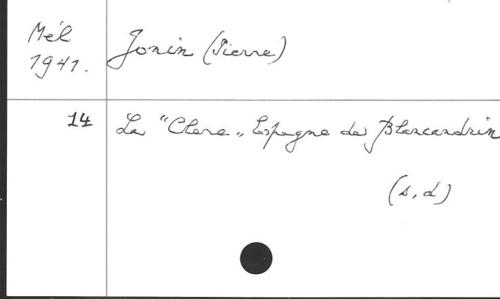 Mél
1941.
Jonin (Pierre)
14
La "Clere„ Espagne de Blancandrin
(s.d)